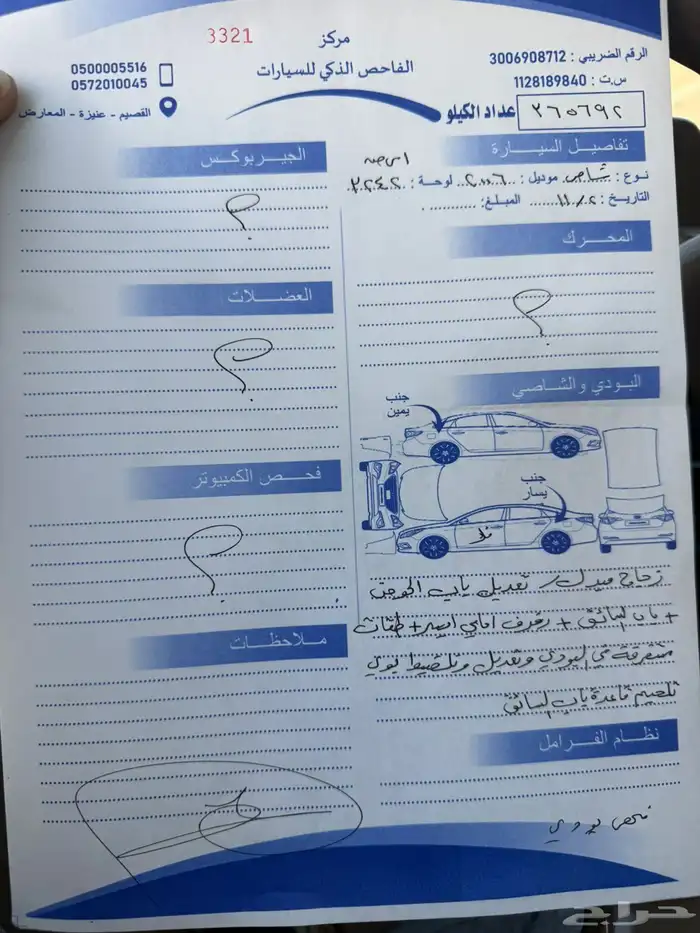 3321
مركز
الفاحص الذكي للسيارات
0500005516
0572010045
القصيم - عنيزة - المعارض
الرقم الضريبي: 3006908712
س.ت: 1128189840
عداد الكيلو
٣٦٥٦٩٢
تفاصيل السيارة
نوع: شاص موديل: ٢٠٠٦ لوحة: ٢٢٤٢
التاريخ: ١١/٢ المبلغ:
المحرك
؟
البودي والشاصي
جنب يمين
جنب يسار
زجاج مبدل / تعديل باب
+ باب السائق + رفرف امامي ايسر + طقات
متفرقة في البودي وتعديل
تلحيم قاعدة باب السائق
نظام الفرامل
فحص بودي
الجيربوكس
؟
العضلات
؟
فحص الكمبيوتر
؟
ملاحظات
حراج